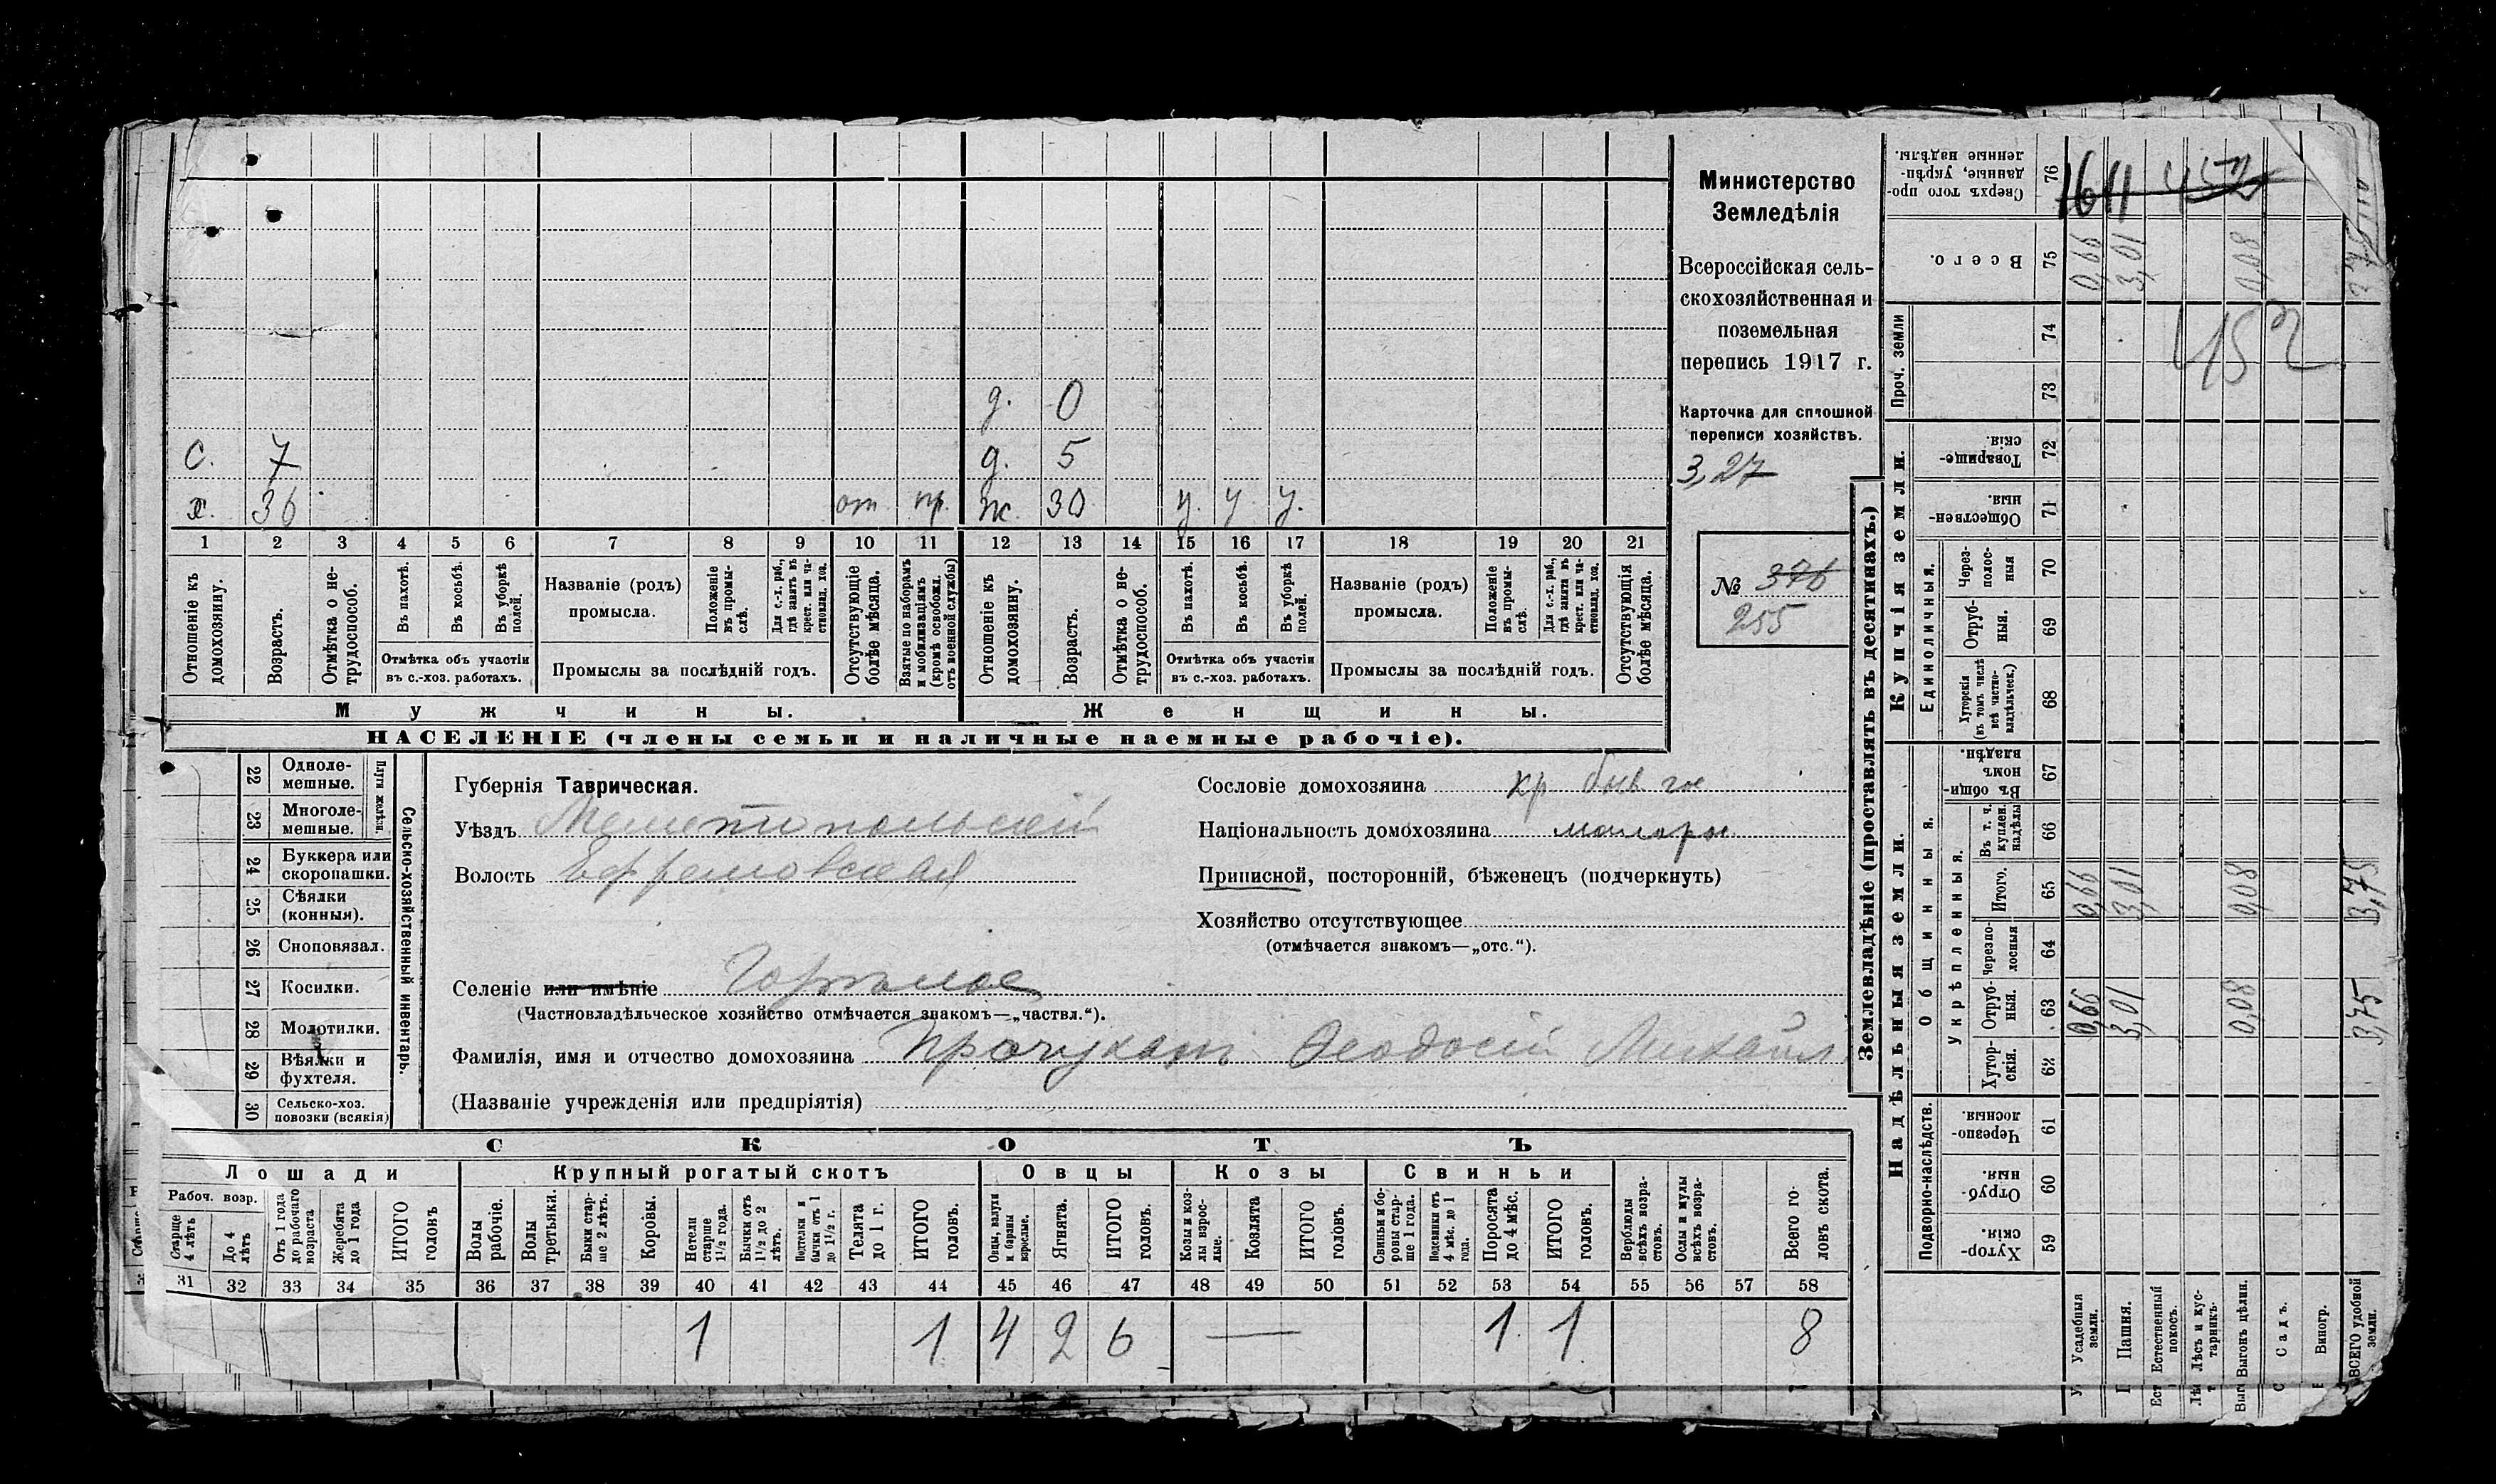 Министерство
Земледѣлія
Всероссійская сель-
скохозяйственная и
поземельная
перепись 1917 г.
Карточка для сплошной
переписи хозяйствъ.
3,27
№ 376
255
д. 0
с. 7 д. 5
х. 36 от. пр. ж. 30 у. у у.
1 2 3 4 5 6 7 8 9 10 11 12 13 14 15 16 17 18 19 20 21
Отношеніе къ домохозяину.
Возрастъ.
Отмѣтка о не-трудоспособ.
Въ пахотѣ.
Въ косьбѣ.
Въ уборкѣ полей.
Отмѣтка объ участіи
въ с.-хоз. работахъ.
Названіе (родъ)
промысла.
Положеніе въ промы-слѣ.
Для с.-х. раб., гдѣ занятъ въ крест. или ча-стновлад. хоз.
Промыслы за послѣдній годъ.
Отсутствующіе болѣе мѣсяца.
Взятые по наборамъ и мобилизаціямъ (кромѣ освобожд. отъ военной службы)
Отношеніе къ домохозяину.
Возрастъ.
Отмѣтка о не-трудоспособ.
Въ пахотѣ.
Въ косьбѣ.
Въ уборкѣ полей.
Отмѣтка объ участіи
въ с.-хоз. работахъ.
Названіе (родъ)
промысла.
Положеніе въ промы-слѣ.
Для с.-х. раб., гдѣ занята въ крест. или ча-стновлад. хоз.
Промыслы за послѣдній годъ.
Отсутствующія болѣе мѣсяца.
Мужчины. Женщины.
НАСЕЛЕНІЕ (члены семьи и наличные наемные рабочіе).
Сельско-хозяйственный инвентарь.
Плуги желѣзн.
22 Одноле-мешные.
23 Многоле-мешные.
24 Буккера или скоропашки.
25 Сѣялки (конныя).
26 Сноповязал.
27 Косилки.
28 Молотилки.
29 Вѣялки и фухтеля.
30 Сельско-хоз. повозки (всякія)
Губернія Таврическая.
Уѣздъ Мелитопольскій
Волость Ефремовская
Селеніе или имѣніе
(Частновладѣльческое хозяйство отмѣчается знакомъ—„частвл.“).
Фамилія, имя и отчество домохозяина Ѳеодосій Михайл
(Названіе учрежденія или предпріятія)
Сословіе домохозяина кр
Національность домохозяина малоро
Приписной, посторонній, бѣженецъ (подчеркнуть)
Хозяйство отсутствующее
(отмѣчается знакомъ—„отс.“).
СКОТЪ
Лошади Крупный рогатый скотъ Овцы Козы Свиньи
Рабоч. возр.
Старше 4 лѣтъ
До 4 лѣтъ
Отъ 1 года до рабочаго возраста
Жеребята до 1 года
ИТОГО головъ
Волы рабочіе.
Волы третьяки.
Быки стар-ше 2 лѣтъ.
Коровы.
Нетели старше 1½ года.
Бычки отъ 1½ до 2 лѣтъ.
Подтелки и бычки отъ 1 до 1½ г.
Телята до 1 г.
ИТОГО головъ.
Овцы, валухи и бараны взрослые.
Ягнята.
ИТОГО головъ.
Козы и коз-лы взрос-лые.
Козлята.
ИТОГО головъ.
Свиньи и бо-ровы стар-ше 1 года.
Подсвинки отъ 4 мѣс. до 1 года.
Поросята до 4 мѣс.
ИТОГО головъ.
Верблюды всѣхъ возра-стовъ.
Ослы и мулы всѣхъ возра-стовъ.
Всего го-ловъ скота.
31 32 33 34 35 36 37 38 39 40 41 42 43 44 45 46 47 48 49 50 51 52 53 54 55 56 57 58
1 1 4 2 6 — 1 1 8
Землевладѣніе (проставлять въ десятинахъ.)
Надѣльныя земли. Купчія земли. Проч. земли
Подворно-наслѣдств.
Общинныя.
Укрѣпленныя.
Единоличныя.
Хутор-скія. 59
Отруб-ныя. 60
Черезпо-лосныя. 61
Хутор-скія. 62
Отруб-ныя. 63 0,66 3,01 0,08 3,75
Черезпо-лосныя 64
Итого. 65 0,66 3,01 0,08 3,75
Въ т. ч. куплен. надѣлы 66
Въ общи-номъ владѣн. 67
Хуторскія (въ томъ числѣ всѣ частно-владѣльческ.) 68
Отруб-ныя. 69
Через-полос-ныя 70
Обществен-ныя. 71
Товарище-скія. 72
73
74 452
Всего. 75 0,66 3,01 0,08
Сверхъ того про-данные, укрѣп-ленные надѣлы. 76 1611 452
Усадебныя земли.
Пашня.
Естественный покосъ.
Лѣсъ и кус-тарникъ.
Выгонъ цѣлин.
Садъ.
Виногр.
ВСЕГО удобной земли.